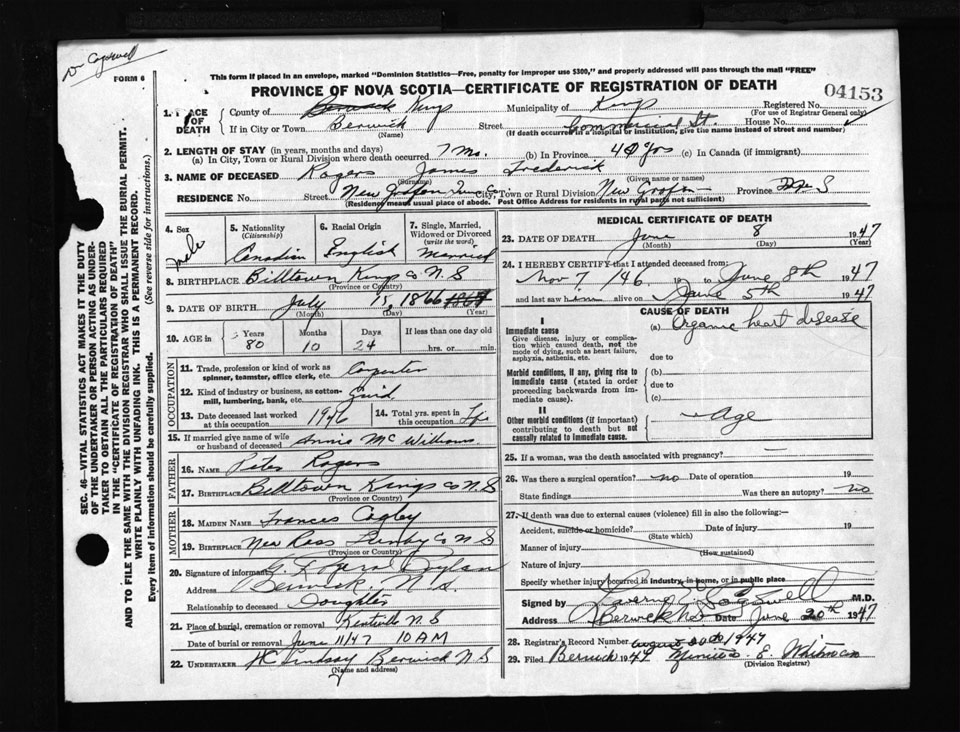 Dr Cogswell
FORM 6
This form if placed in an envelope, marked "Dominion Statistics—Free, penalty for improper use $300," and properly addressed will pass through the mail "FREE"
PROVINCE OF NOVA SCOTIA—CERTIFICATE OF REGISTRATION OF DEATH
04153
1. PLACE OF DEATH
County of Berwick Kings Municipality of Kings Registered No.
(For use of Registrar General only)
If in City or Town Berwick Street Commercial St. House No.
(Name) (If death occurred in a hospital or institution, give the name instead of street and number)
2. LENGTH OF STAY (in years, months and days)
(a) In City, Town or Rural Division where death occurred 7 Mo. (b) In Province 40 Yrs (c) In Canada (if immigrant)
3. NAME OF DECEASED Rogers James Frederick
(Surname) (Given name or names)
RESIDENCE No. Street New Grafton City, Town or Rural Division New Grafton Province N S
(Residency means usual place of abode. Post Office Address for residents in rural parts not sufficient)
4. Sex male
5. Nationality (Citizenship) Canadian
6. Racial Origin English
7. Single, Married, Widowed or Divorced (write the word) Married
8. BIRTHPLACE Billtown Kings Co N.S
(Province or Country)
9. DATE OF BIRTH July 15, 1866 1867
(Month) (Day) (Year)
10. AGE in Years 80 Months 10 Days 24 If less than one day old hrs. or min.
OCCUPATION
11. Trade, profession or kind of work as spinner, teamster, office clerk, etc. Carpenter
12. Kind of industry or business, as cotton-mill, lumbering, bank, etc.
13. Date deceased last worked at this occupation 1946
14. Total yrs. spent in this occupation
15. If married give name of wife or husband of deceased Annie McWilliams
FATHER
16. Name Peter Rogers
17. Birthplace Billtown Kings Co N S
(Province or Country)
MOTHER
18. Maiden Name Frances
19. Birthplace New Ross Lunby Co N S
(Province or Country)
20. Signature of informant
Address Berwick N.S.
Relationship to deceased Doughter
21. Place of burial, cremation or removal Kentville N S
Date of burial or removal June 11/47 10 AM
22. UNDERTAKER Lindsay Berwick N S
(Name and address)
MEDICAL CERTIFICATE OF DEATH
23. DATE OF DEATH June 8 1947
(Month) (Day) (Year)
24. I HEREBY CERTIFY that I attended deceased from:
Nov 7, /46. 19 to June 8th 1947
and last saw him alive on June 5th 1947
CAUSE OF DEATH
I
Immediate cause
Give disease, injury or complication which caused death, not the mode of dying, such as heart failure, asphyxia, asthenia, etc.
(a) Organic heart disease
due to
Morbid conditions, if any, giving rise to immediate cause (stated in order proceeding backwards from immediate cause).
(b)
due to
(c)
II
Other morbid conditions (if important) contributing to death but not causally related to immediate cause.
Age
25. If a woman, was the death associated with pregnancy? —
26. Was there a surgical operation? no Date of operation 19
State findings Was there an autopsy? no
27. If death was due to external causes (violence) fill in also the following:—
Accident, suicide or homicide? Date of injury 19
(State which)
Manner of injury
(How sustained)
Nature of injury
Specify whether injury occurred in industry, in home, or in public place
Signed by Laverne Cogswell M.D.
Address Berwick NS Date June 20th 1947
28. Registrar's Record Number August 20th 1947
29. Filed Berwick 1947 E. Whitman
(Division Registrar)
SEC. 46—VITAL STATISTICS ACT MAKES IT THE DUTY OF THE UNDERTAKER OR PERSON ACTING AS UNDERTAKER TO OBTAIN ALL THE PARTICULARS REQUIRED IN THE "CERTIFICATE OF REGISTRATION OF DEATH" AND TO FILE THE SAME WITH THE DIVISION REGISTRAR WHO SHALL ISSUE THE BURIAL PERMIT.
WRITE PLAINLY WITH UNFADING INK. THIS IS A PERMANENT RECORD.
Every item of information should be carefully supplied. (See reverse side for instructions.)